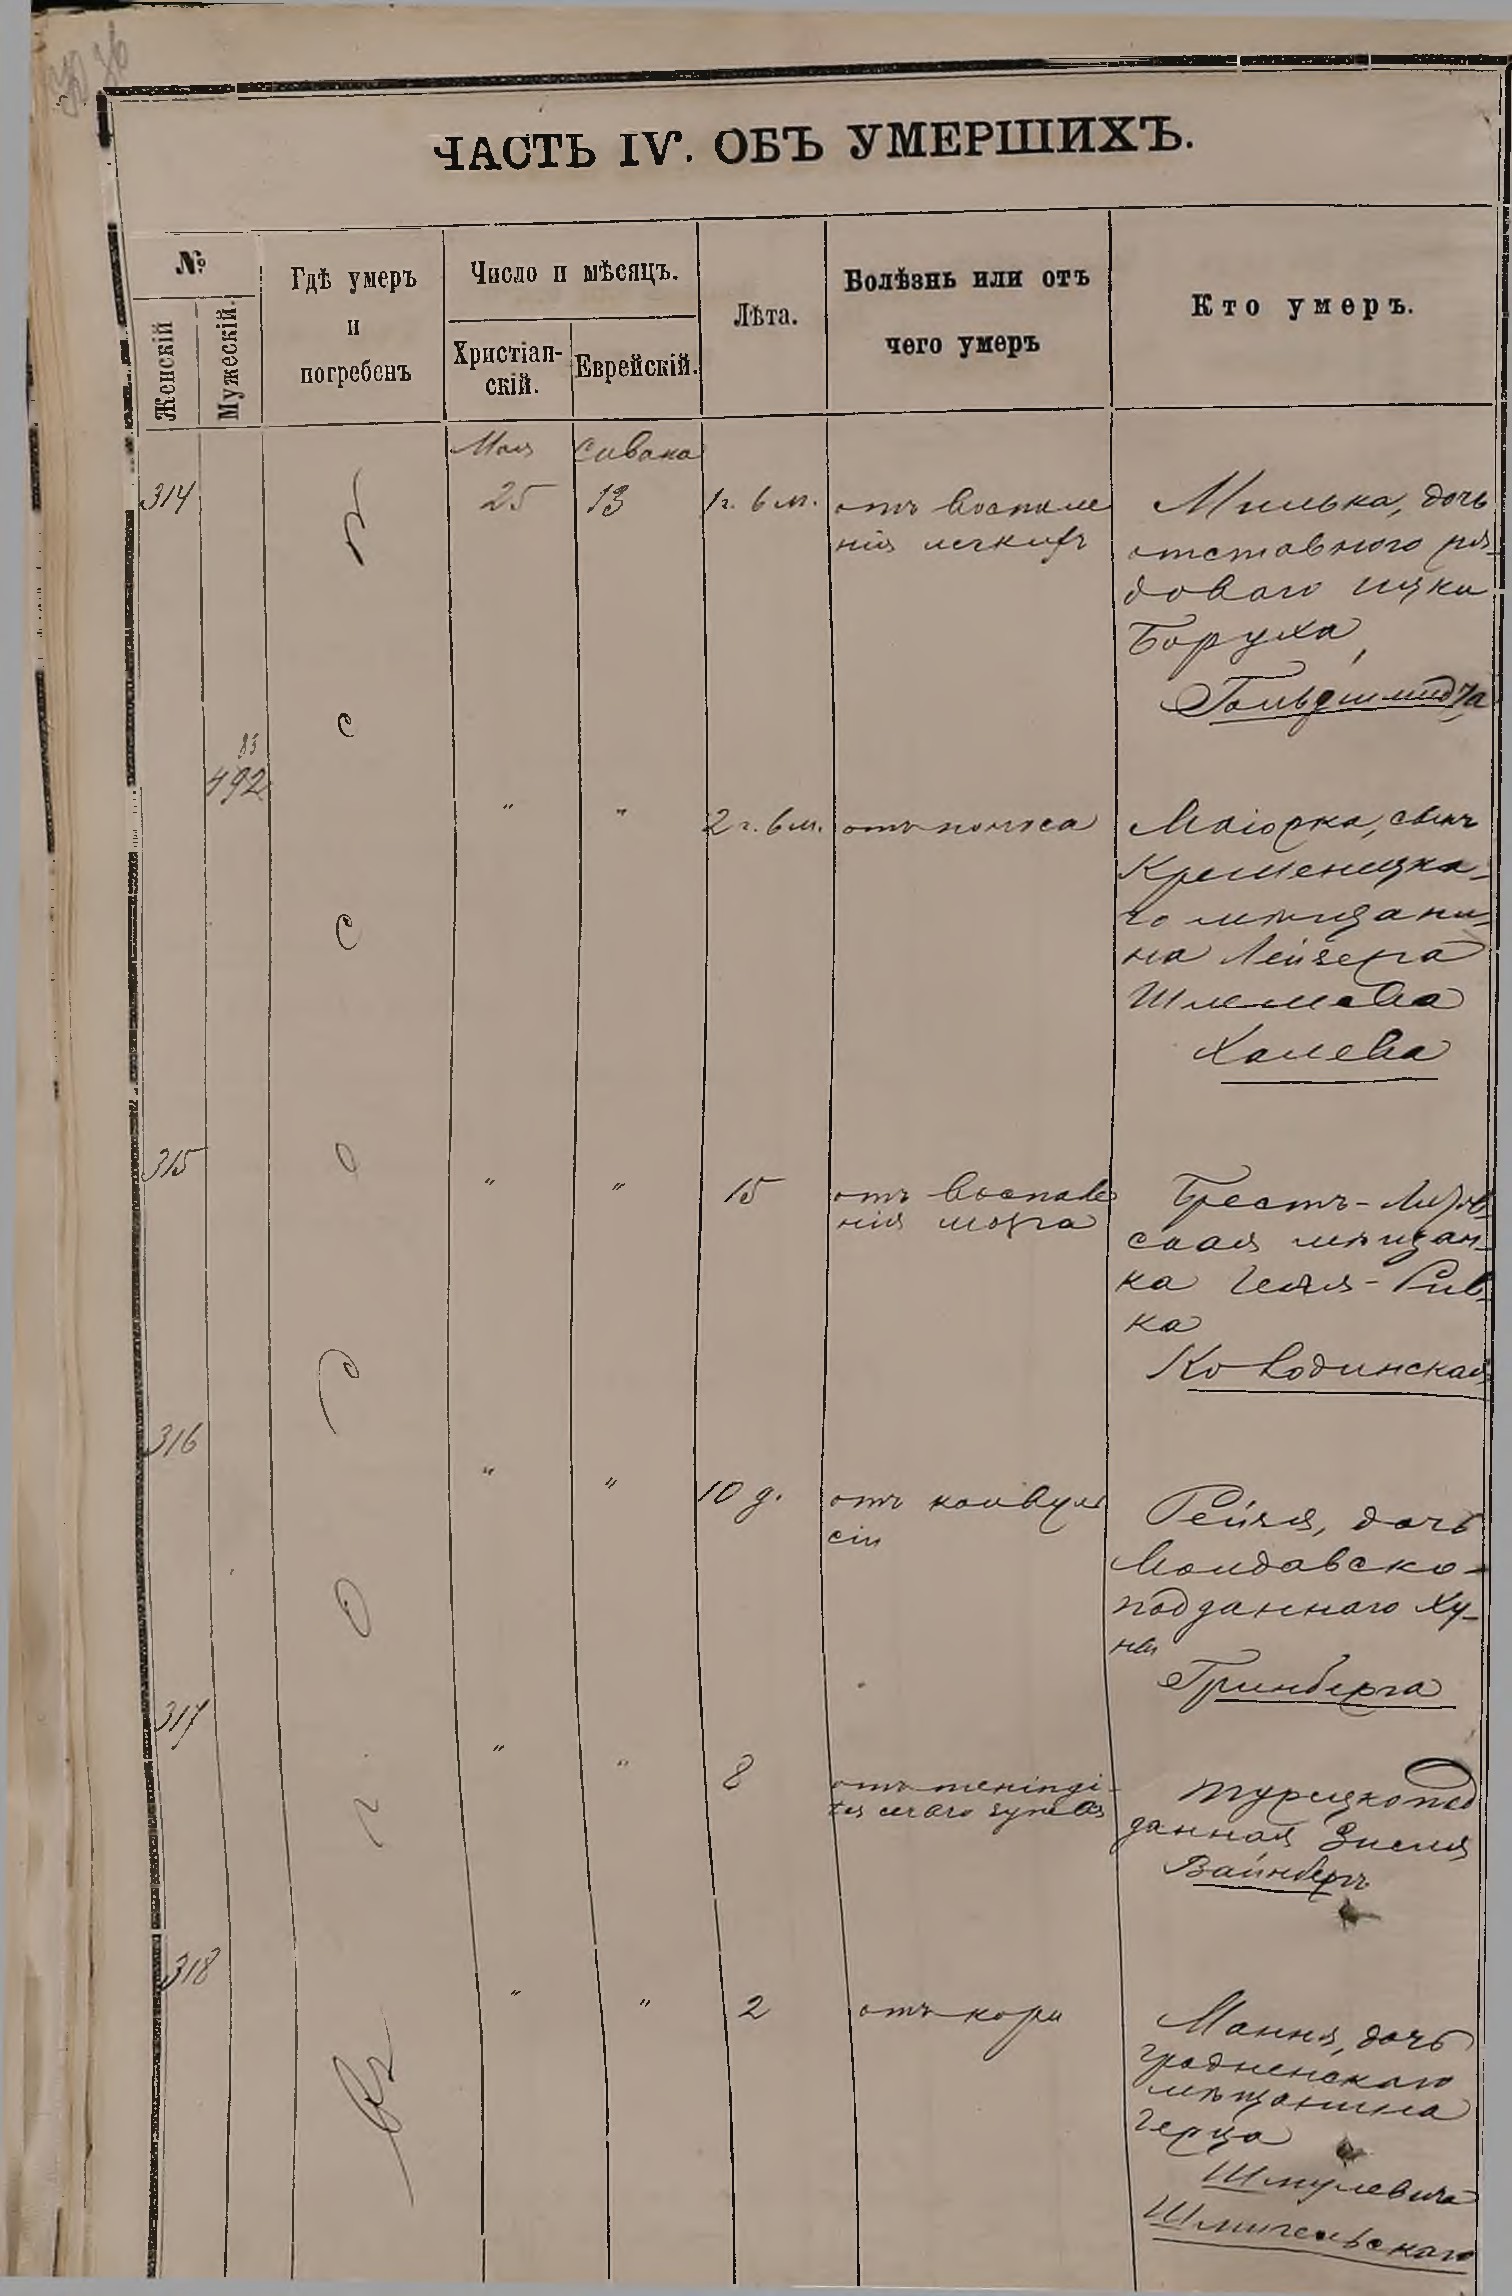 ЧАСТЬ IV. ОБЪ УМЕРШИХЪ.
№
Женскій
Мужескій.
Гдѣ умеръ
и
погребенъ
Число и мѣсяцъ.
Христіан-
скій.
Еврейскій.
Лѣта.
Болѣзнь или отъ
чего умеръ
Кто умеръ.
Мая Сивана
314 25 13 1 г. 6 м. отъ воспале
нія легкихъ
Милька, дочь
отставного ря-
дового Ицки
Боруха,
Гольдшмидта
83
492 " " 2 г. 6 м. отъ поноса
Маіорка, сынъ
Кременецка-
го мѣщани-
на Лейзера
Шлемова
Халева
315 " " 15 отъ воспале
нія мозга
Брестъ-Литов-
ская мѣщан-
ка Геля-Рив-
ка
316 " " 10 д. отъ конвуль
сіи
Рейзя, дочь
Молдавско-
подданнаго Ху-
ны
Гринберга
317 " " 8 отъ meningi-
tis
Турецкопод
данная Зисля
Вайнбергъ
318 " " 2 отъ кори
Мання, дочь
гродненскаго
мѣщанина
Герца
Шмулевича